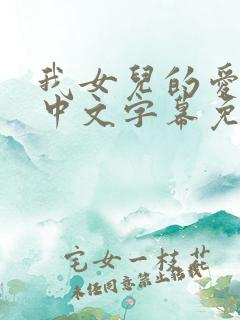 我女兒的愛
中文字幕免
宅女一枝花
未经同意禁止转载